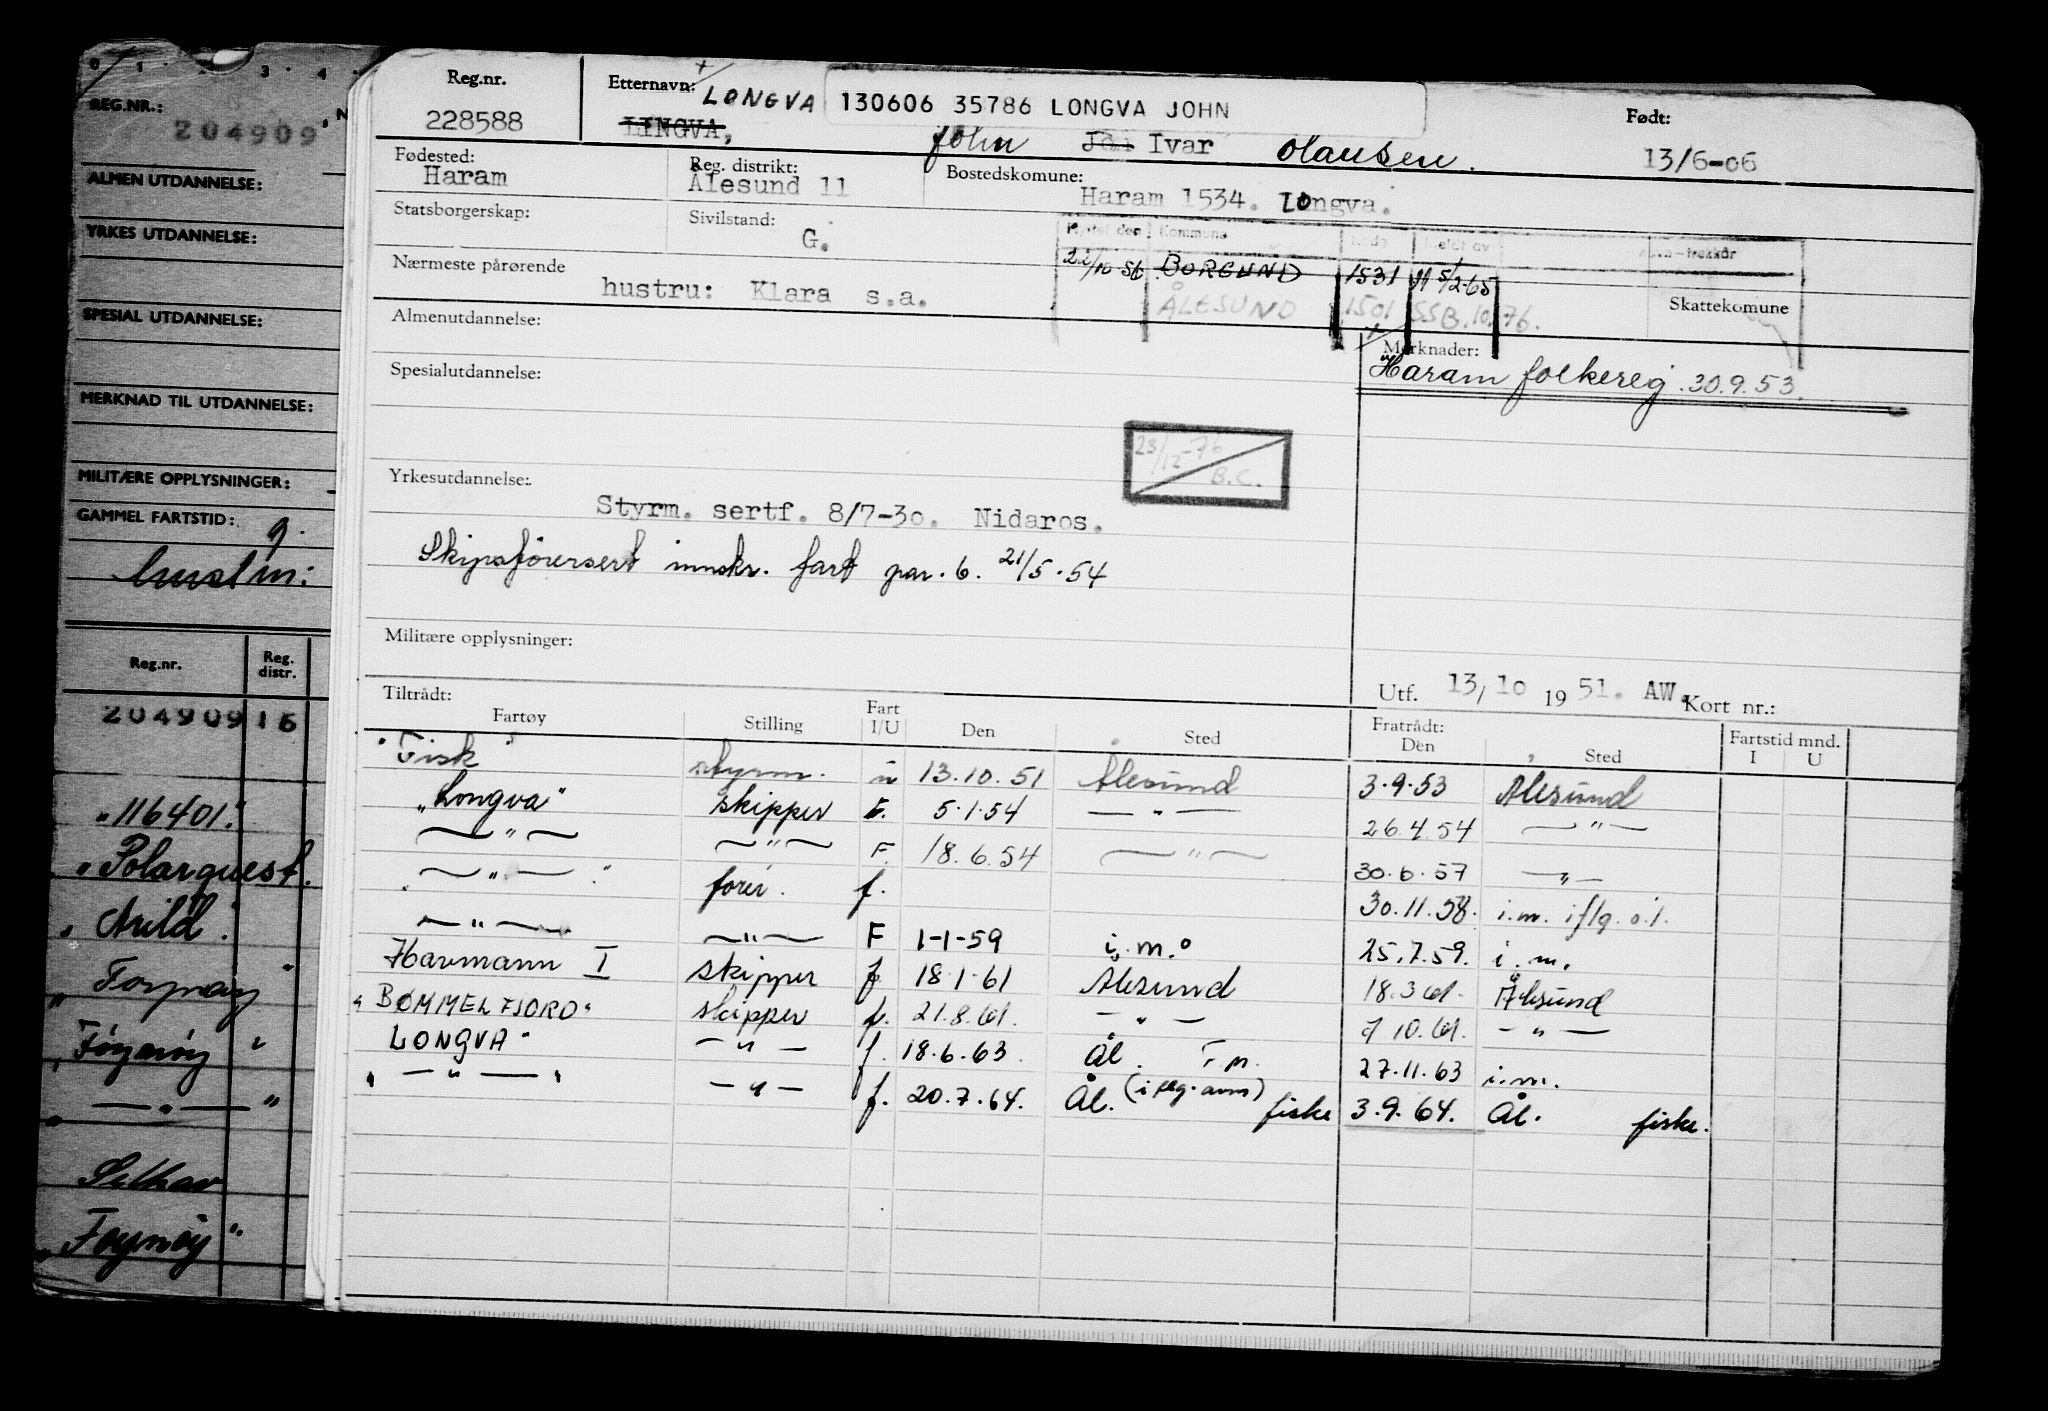 0 1 . . 3 . 4 .
REG.NR.: N
204909
ALMEN UTDANNELSE:
YRKES UTDANNELSE:
SPESIAL UTDANNELSE:
MERKNAD TIL UTDANNELSE:
MILITÆRE OPPLYSNINGER:
GAMMEL FARTSTID: g.
Reg.nr. Reg. distr.
204909 16
"116401".
"Polarquest.
"Arild".
"Föynöy"
———"———"
Selhav
"Foynöy"
Reg.nr.
228588
Etternavn: LONGVA
LINGVA,
130606 35786 LONGVA JOHN
John Ivar Olausen.
Født:
13/6-06
Fødested:
Haram
Reg. distrikt:
Ålesund 11
Bostedskommune:
Haram 1534. Longva.
Statsborgerskap:
Sivilstand:
G.
Flyttet den Kommune Kode Meldt av
22/10 56 BORGUND 1531 5/2-65
ÅLESUND 1501 SSB.10.76.
Skattekomune
Nærmeste pårørende
hustru: Klara s.a.
Almenutdannelse:
Merknader:
Haram folkereg. 30.9.53.
Spesialutdannelse:
23/12-76
B.C.
Yrkesutdannelse:
Styrm. sertf. 8/7-30. Nidaros.
Skipsførersert innskr. fart par. 6. 21/5.54
Militære opplysninger:
Utf. 13/10 1951. AW. Kort nr.:
Tiltrådt:
Fartøy Stilling Fart I/U Den Sted Fratrådt: Den Sted Fartstid mnd. I U
"Fisk" styrm. u 13.10.51 Ålesund 3.9.53 Ålesund
"Longva" skipper F. 5.1.54 —"— 26.4.54 —"—
—"— —"— F. 18.6.54 —"— 30.6.57 —"—
—"— fører. f. 30.11.58. i.m. iflg. o.l.
—"— —"— F 1-1-59 i.m. 25.7.59. i.m.
Havmann I skipper f. 18.1.61 Ålesund 18.3.61. Ålesund
"BØMMELFJORD" skipper f. 21.8.61. —"— 7.10.61. —"—
LONGVA" —"— f. 18.6.63. Ål. 27.11.63 i.m.
" —"— " —"— f. 20.7.64. Ål. (iflg. avm) fiske 3.9.64. Ål. fiske.